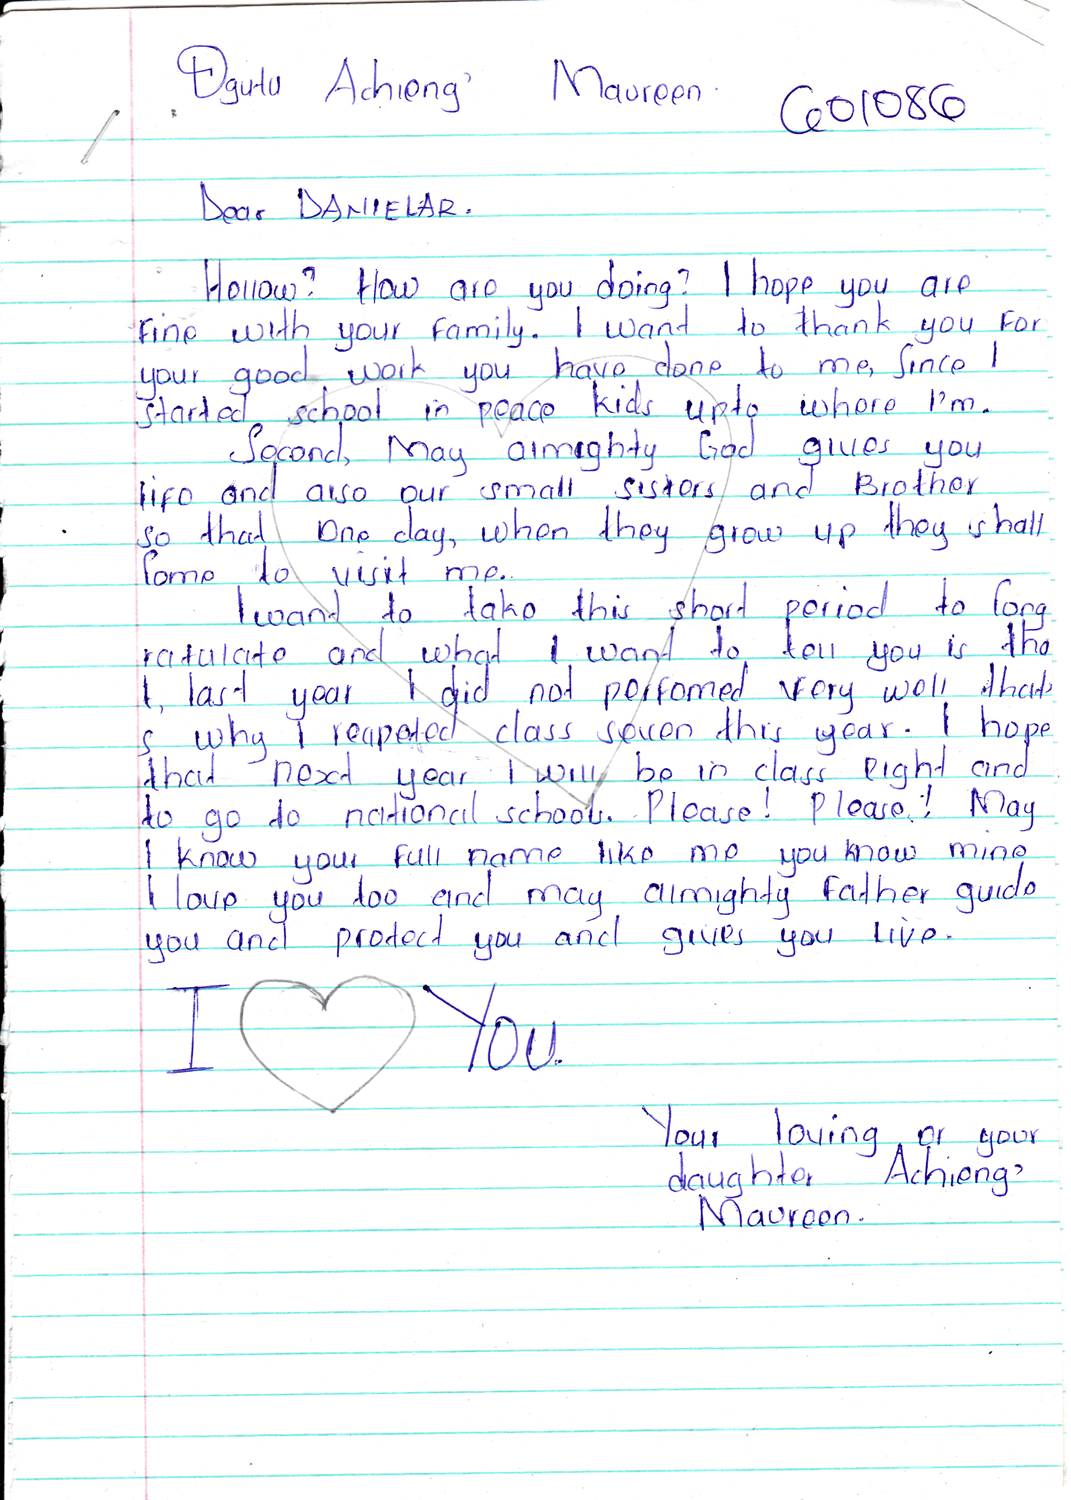 Ogutu Achieng' Maureen. G01086
Dear DANIELAR.
Hollow? How are you doing? I hope you are
fine with your family. I want to thank you for
your good work you have done to me, Since I
started school in peace kids upto where I'm.
Second, May almighty God gives you
life and also our small sisters and Brother
so that one day, when they grow up they shall
Come to visit me.
I want to take this short period to Cong
ratulate and what I want to tell you is tha
t, last year I did not perfomed very well that'
s why I reapeted class seven this year. I hope
that next year I will be in class eight and
to go to national school. Please! Please! May
I know your full name like me you know mine
I love you too and may almighty Father guide
you and protect you and gives you live.
I You.
Your loving or your
daughter Achieng'
Maureen.